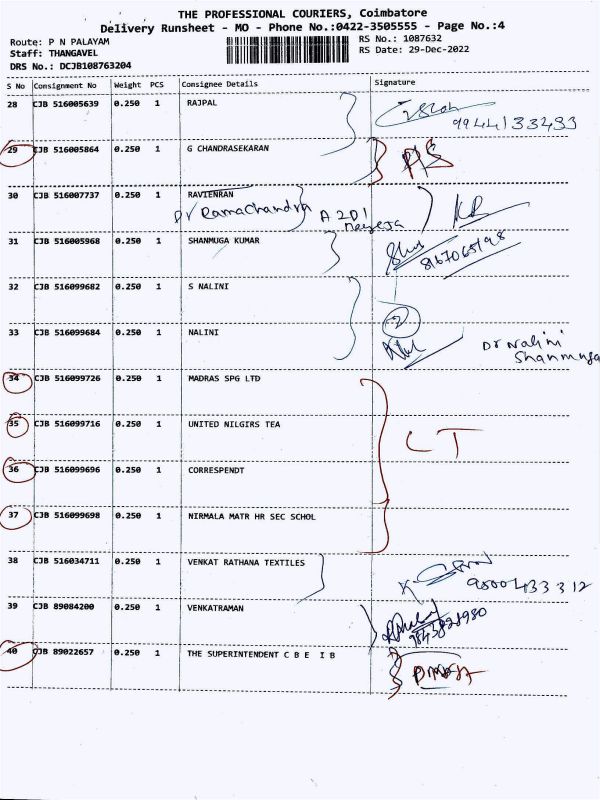 THE PROFESSIONAL COURIERS, Coimbatore
Delivery Runsheet - MO - Phone No.:0422-3505555 - Page No.:4
Route: P N PALAYAM
RS No.: 1087632
Staff: THANGAVEL
RS Date: 29-Dec-2022
DRS No.: DCJB108763204
S No Consignment No Weight PCS Consignee Details Signature
28 CJB 516005639 0.250 1 RAJPAL
9944133433
29 CJB 516005864 0.250 1 G CHANDRASEKARAN
30 CJB 516007737 0.250 1 RAVIENRAN
Dr RamaChandra A2D1
31 CJB 516005968 0.250 1 SHANMUGA KUMAR
8167065198
32 CJB 516099682 0.250 1 S NALINI
2
33 CJB 516099684 0.250 1 NALINI
Dr Nalini
Shanmuga
34 CJB 516099726 0.250 1 MADRAS SPG LTD
35 CJB 516099716 0.250 1 UNITED NILGIRS TEA
LT
36 CJB 516099696 0.250 1 CORRESPENDT
37 CJB 516099698 0.250 1 NIRMALA MATR HR SEC SCHOL
38 CJB 516034711 0.250 1 VENKAT RATHANA TEXTILES
9500433312
39 CJB 89084200 0.250 1 VENKATRAMAN
40 CJB 89022657 0.250 1 THE SUPERINTENDENT C B E I B